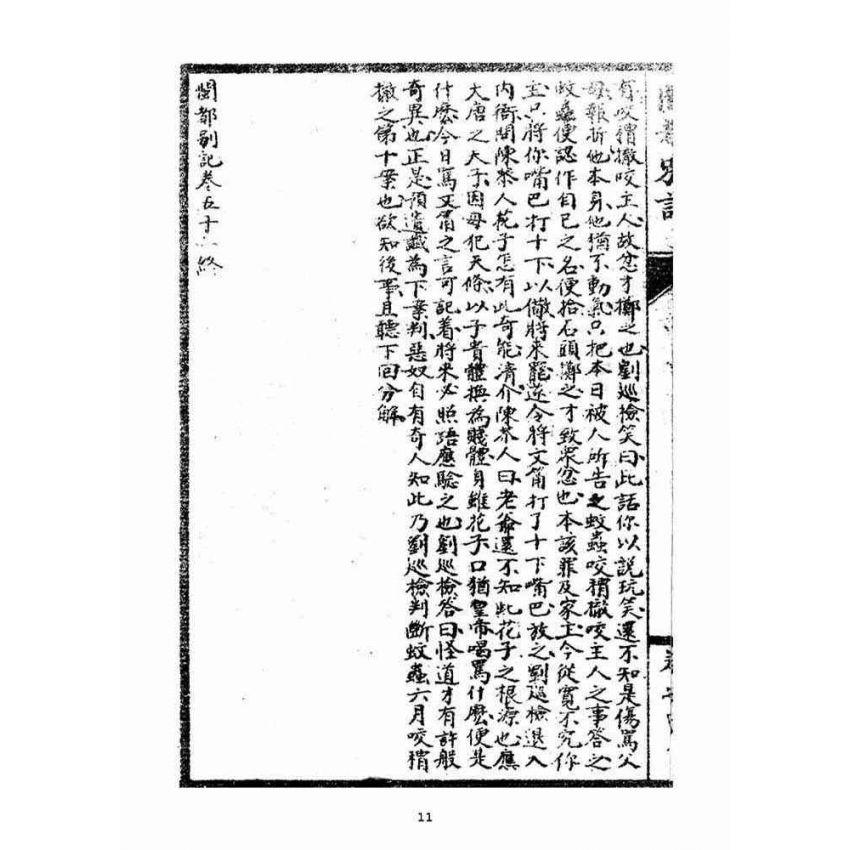 有咬猬撇咬主人故忿才擲之也劉巡檢笑曰此話你以說玩笑還不知是傷罵父
母報折他本身他猶不動氣只把本日被人所告之蚊蟲咬猬撇咬主人之事答之
蚊蟲便認作自己之名便拾石頭擲之才致眾忿也本該罪及家主今從寬不究你
主只將你嘴巴打十下以儆將來罷遂令將文甫打了十下嘴巴放之劉巡檢退入
內衙問陳恭人花子怎有此奇能清介陳恭人曰老爺還不知此花子之根源也應
大唐之天子因母犯天條以子貴體換為賤體身雖花子口猶皇帝喝罵什麼便是
什麼今日罵文甫之言可記着將來必照語應驗之也劉巡檢答曰怪道才有許般
奇異也正是預遺讖為下案判惡奴自有奇人知此乃劉巡檢判斷蚊蟲六月咬猬
撇之第十案也欲知後事且聽下回分解
閩都別記卷五十終
11